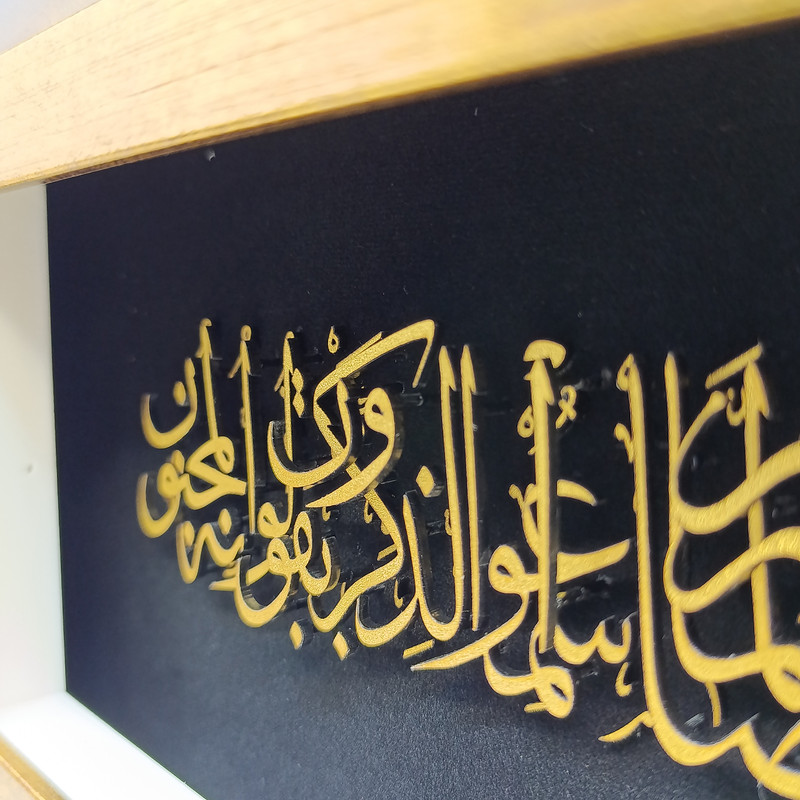 لما سمعوا الذكر ويقولون إنه لمجنون